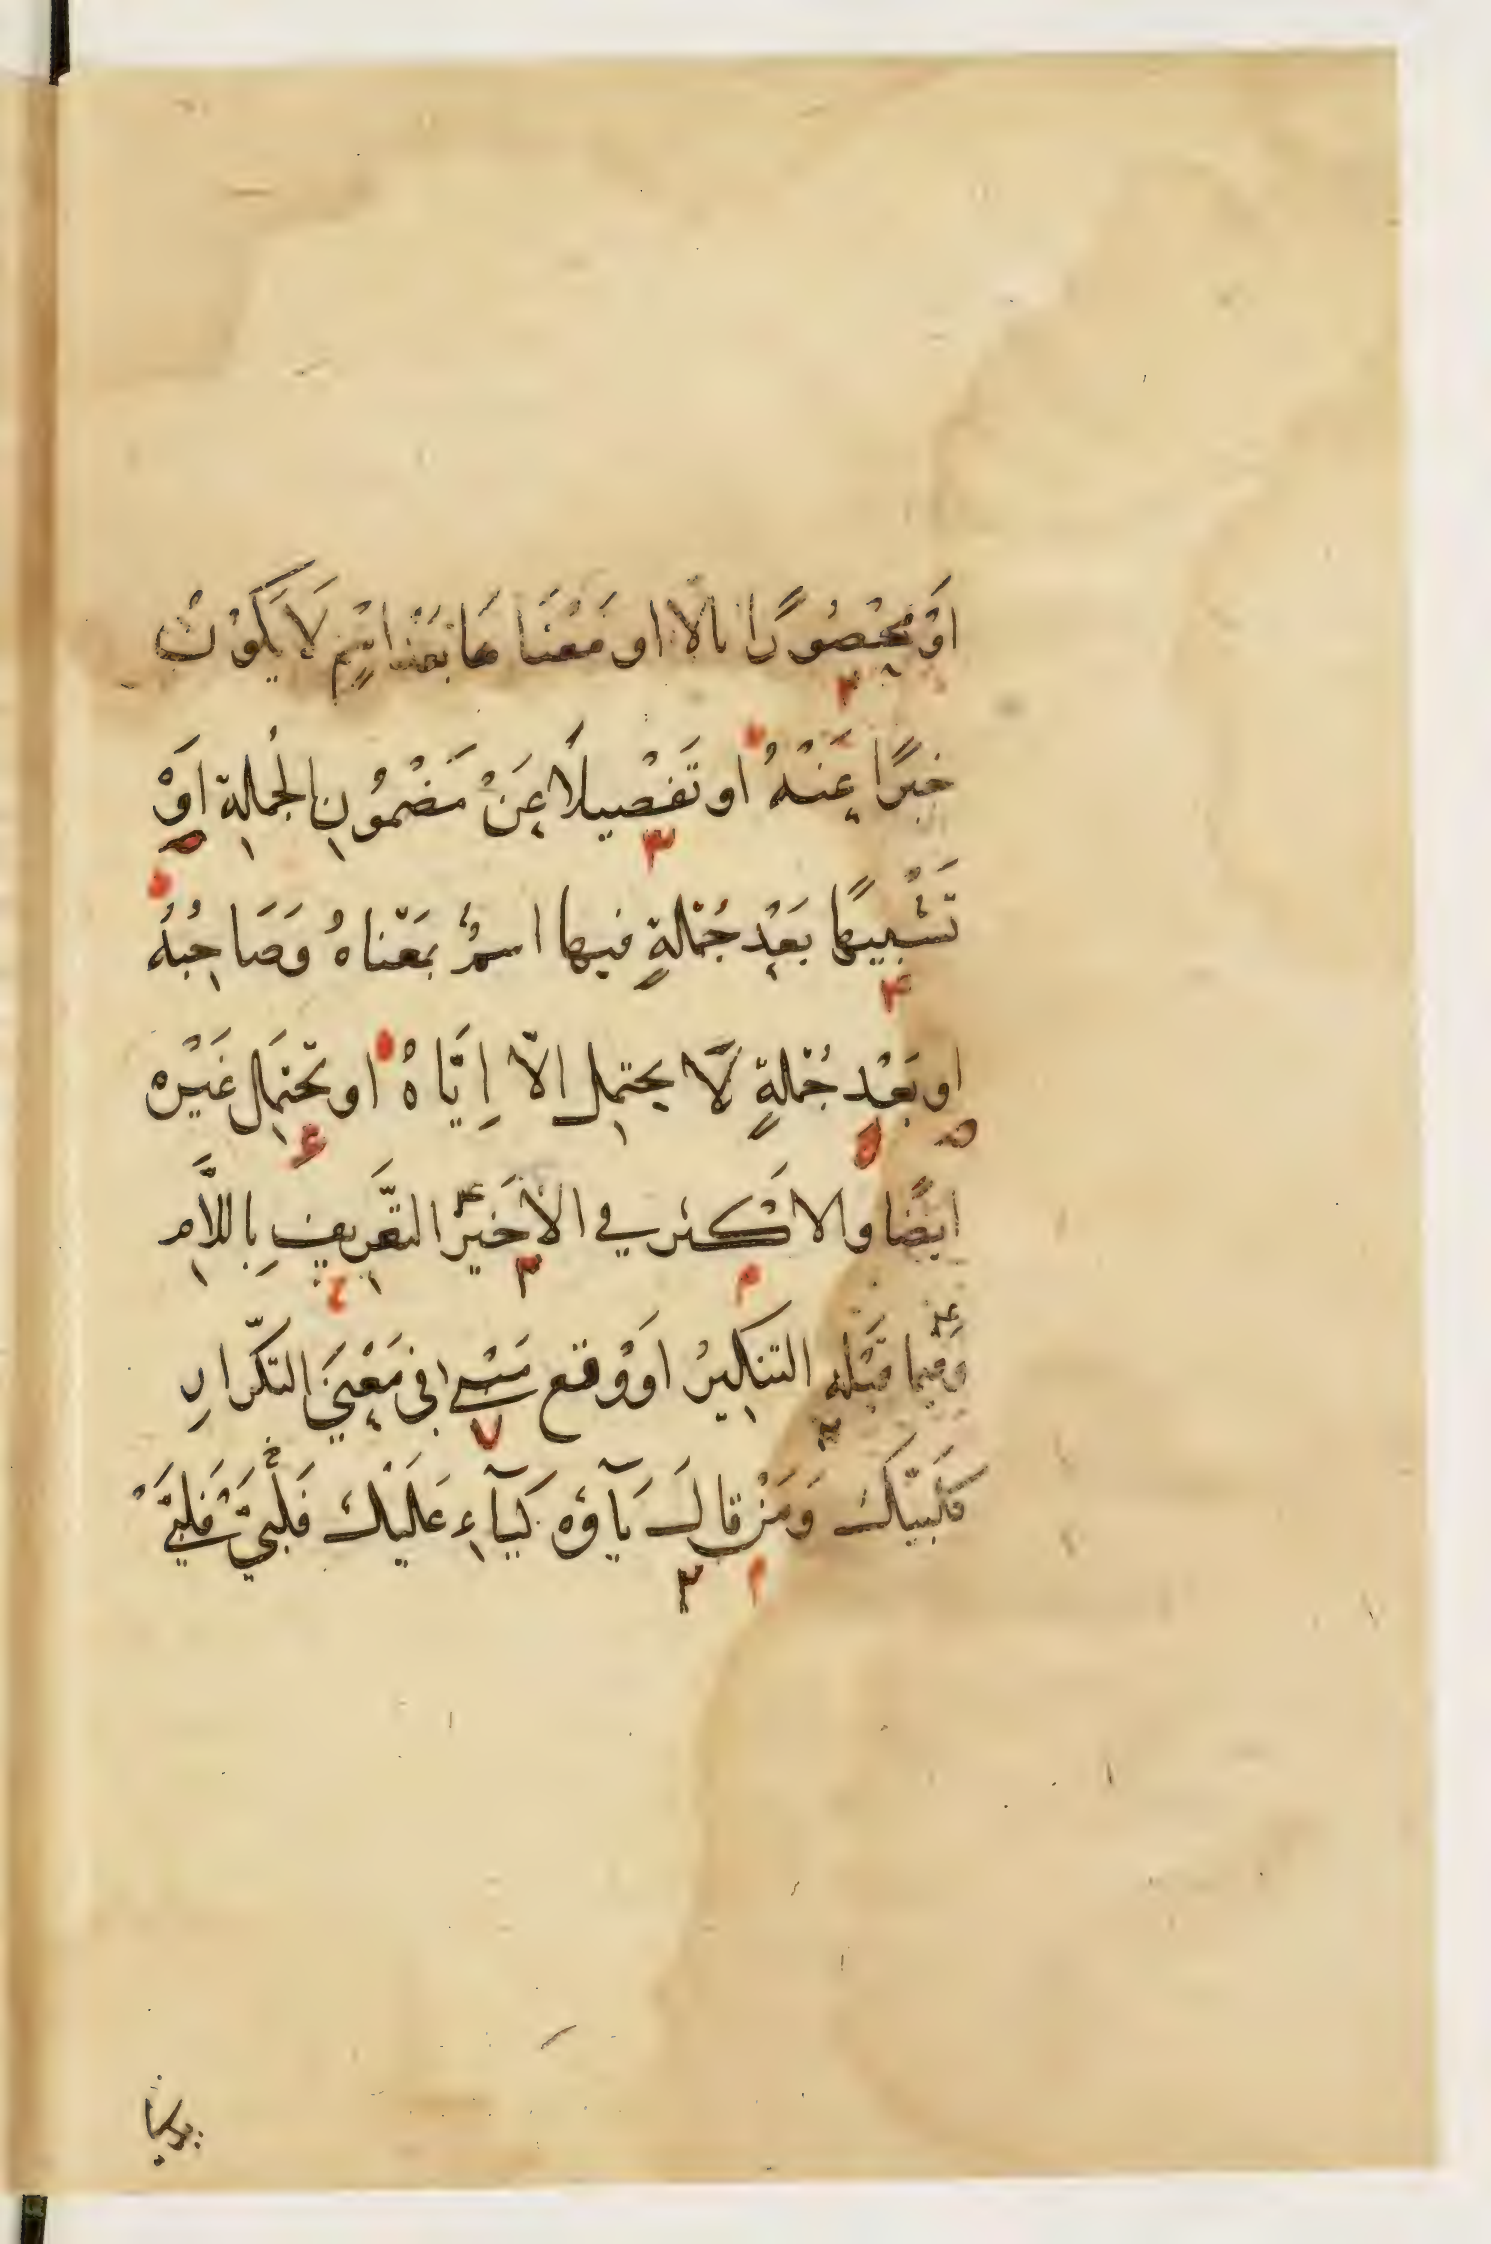 اَوْ مَحْصُورًا بالّا او مَعْنَا هَا بَعْدَ اسْمٍ لَا يَكُوْنُ
٢
خبرًا عَنْهُ او تَفْصْيلًا عَنْ مَضْمُونِ الجُملِة اَوْ
٣
تَشْبيهًا بَعْد جُمْلةٍ فيها اسمٌ بمَعْناهُ وَصَاحِبُهُ
۴
او بَعْد جُمْلةٍ لَّا يحتمِل الّا اِيَّاهُ او تحْتمِل غَيْره
۵ ۶
ايضًا والاَكْثر في الاَخَيرْ التَّعْريفِ بِاللَّامِ
وَفيما قبْله التنكِيرُ اَوْ وُقع مَثْنى في مَعْنَى التكّرارِ
٧
فَلَبَّيْك وَمَنْ قالَ يَآؤه كَيَآءِ عَلَيْك فَلَبىَّ فَلبَّىْ
٢